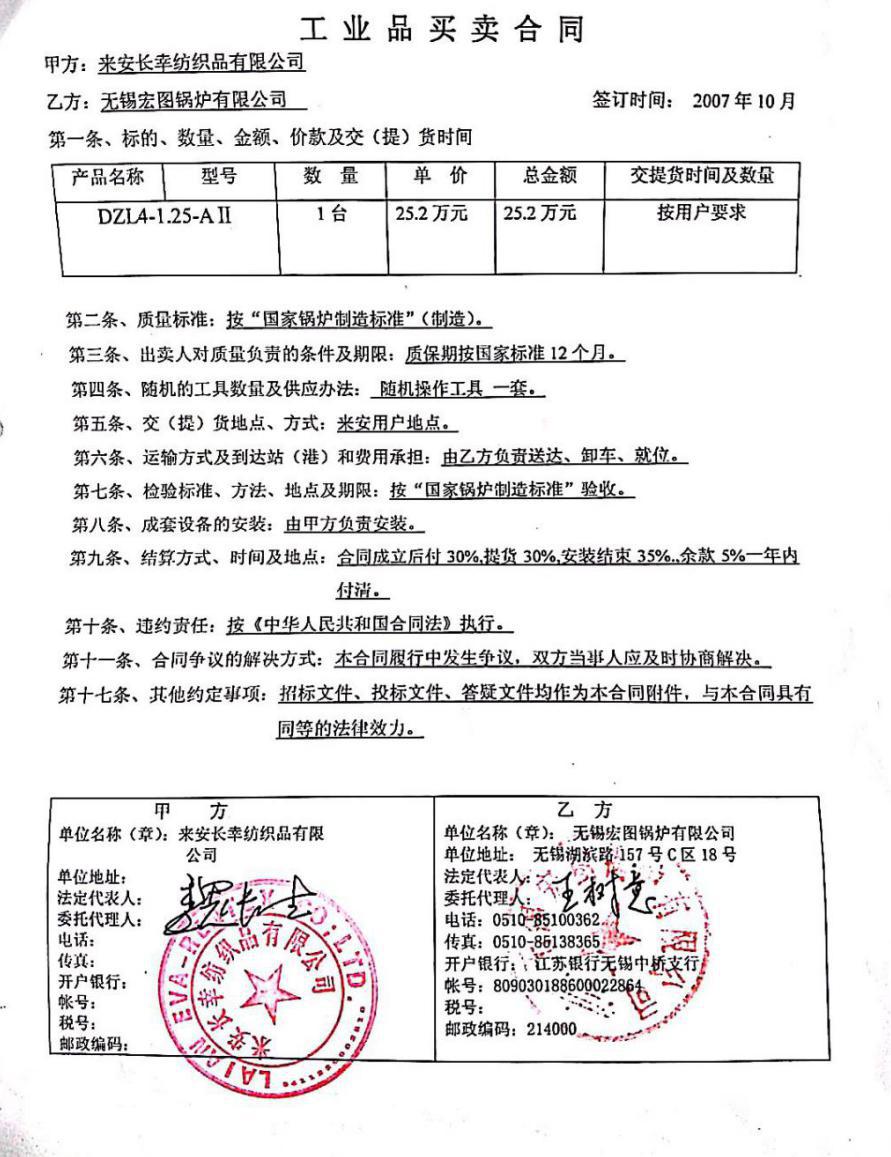 工业品买卖合同
甲方：来安长幸纺织品有限公司
乙方：无锡宏图锅炉有限公司 签订时间： 2007年10月
第一条、标的、数量、金额、价款及交（提）货时间
产品名称 型号 数 量 单 价 总金额 交提货时间及数量
DZL4-1.25-AⅡ 1台 25.2万元 25.2万元 按用户要求
第二条、质量标准：按“国家锅炉制造标准”（制造）。
第三条、出卖人对质量负责的条件及期限：质保期按国家标准12个月。
第四条、随机的工具数量及供应办法： 随机操作工具 一套。
第五条、交（提）货地点、方式：来安用户地点。
第六条、运输方式及到达站（港）和费用承担：由乙方负责送达、卸车、就位。
第七条、检验标准、方法、地点及期限：按“国家锅炉制造标准”验收。
第八条、成套设备的安装：由甲方负责安装。
第九条、结算方式、时间及地点：合同成立后付30%,提货30%,安装结束35%.,余款5%一年内
付清。
第十条、违约责任：按《中华人民共和国合同法》执行。
第十一条、合同争议的解决方式：本合同履行中发生争议，双方当事人应及时协商解决。
第十七条、其他约定事项：招标文件、投标文件、答疑文件均作为本合同附件，与本合同具有
同等的法律效力。
甲 方
单位名称（章）：来安长幸纺织品有限
公司
单位地址：
法定代表人：
委托代理人：
电话：
传真：
开户银行：
帐号：
税号：
邮政编码：
来安长幸纺织品有限公司
乙 方
单位名称（章）： 无锡宏图锅炉有限公司
单位地址： 无锡湖滨路157号C区18号
法定代表人：
委托代理人： 王树意
电话：0510-85100362
传真：0510-85138365
开户银行：江苏银行无锡中桥支行
帐号：809030188600022864
税号：
邮政编码：214000